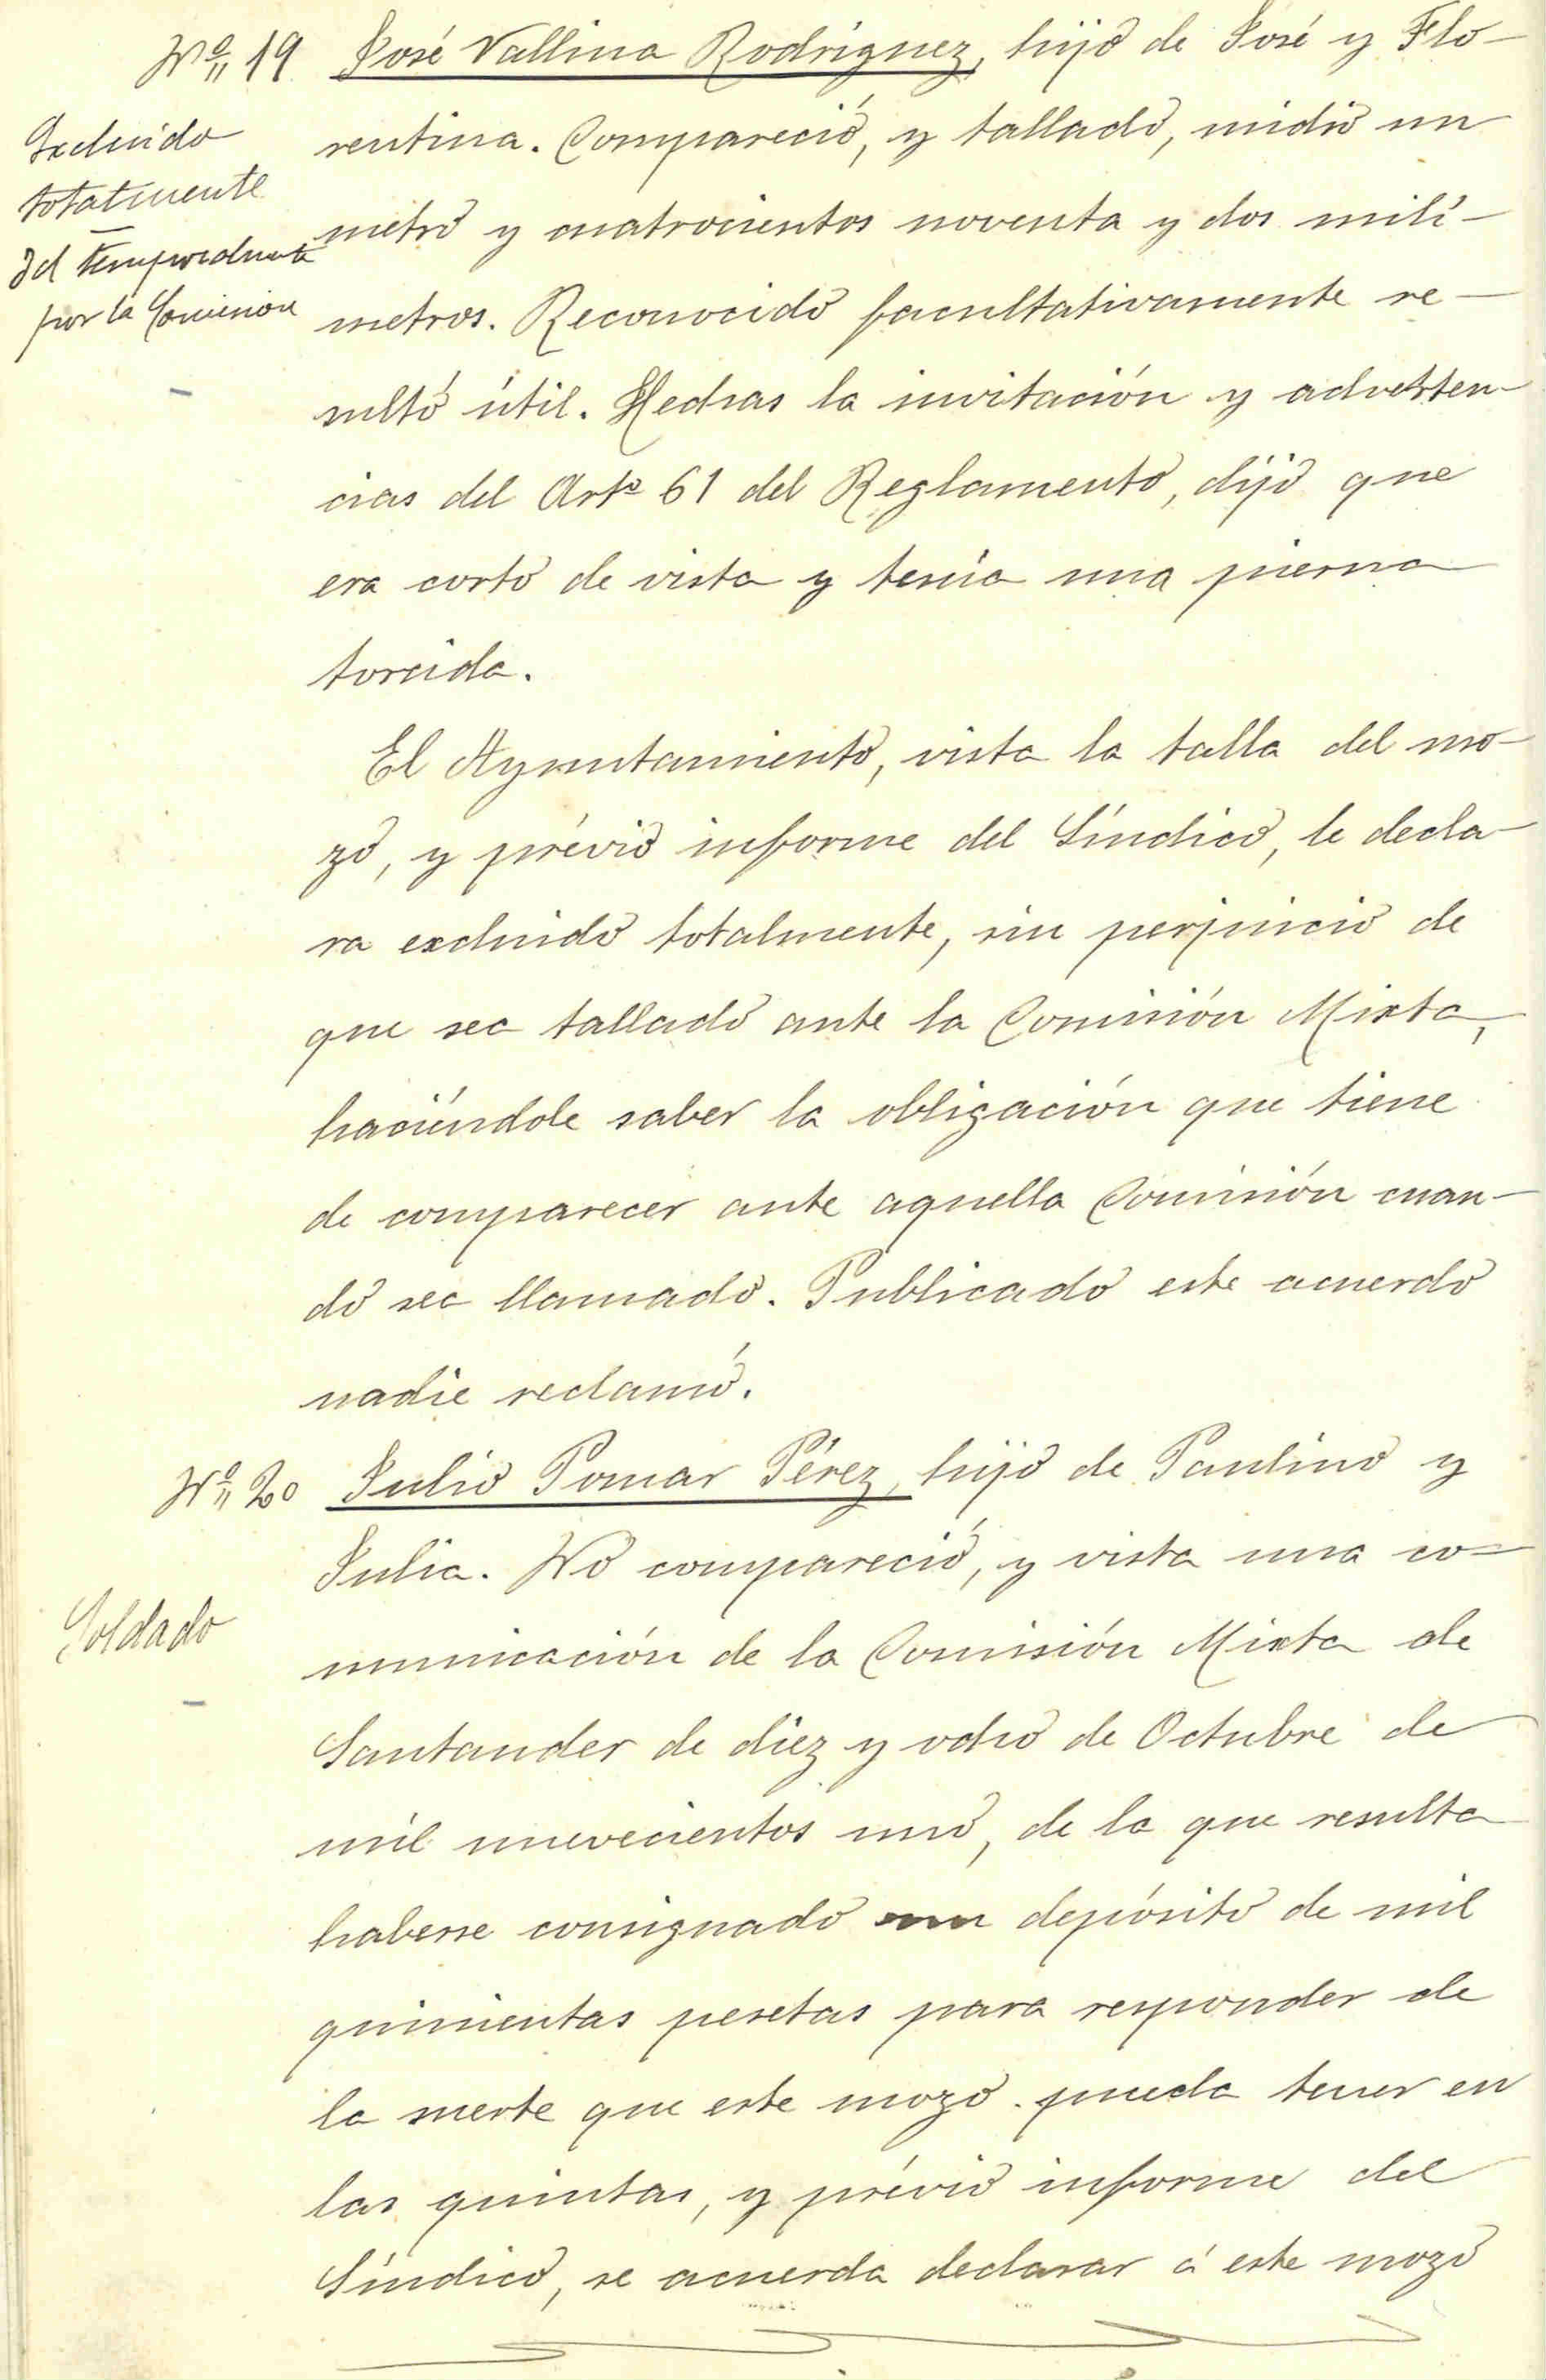 Nº 19 José Vallina Rodríguez, hijo de José y Flo-
rentina. Compareció, y tallado, midió un
metro y cuatrocientos noventa y dos milí-
metros. Reconocido facultativamente re-
sultó útil. Hechas la invitación y adverten-
cias del Artº 61 del Reglamento, dijo que
era corto de vista y tenía una pierna
torcida.
Excluido
totalmente
Id temporalmente
por la Comision
El Ayuntamiento, vista la talla del mo-
zo, y prévio informe del Síndico, le decla-
ra excluido totalmente, sin perjuicio de
que sea tallado ante la Comisión Mixta,
haciéndole saber la obligación que tiene
de comparecer ante aquella Comisión cuan-
do sea llamado. Publicado este acuerdo
nadie reclamó.
Nº 20 Julio Pomar Pérez, hijo de Paulino y
Julia. No compareció, y vista una co-
municación de la Comisión Mixta de
Soldado
Santander de diez y ocho de Octubre de
mil nuevecientos uno, de la que resulta
haberse consignado un depósito de mil
quinientas pesetas para responder de
la suerte que este mozo pueda tener en
las quintas, y prévio informe del
Síndico, se acuerda declarar á este mozo